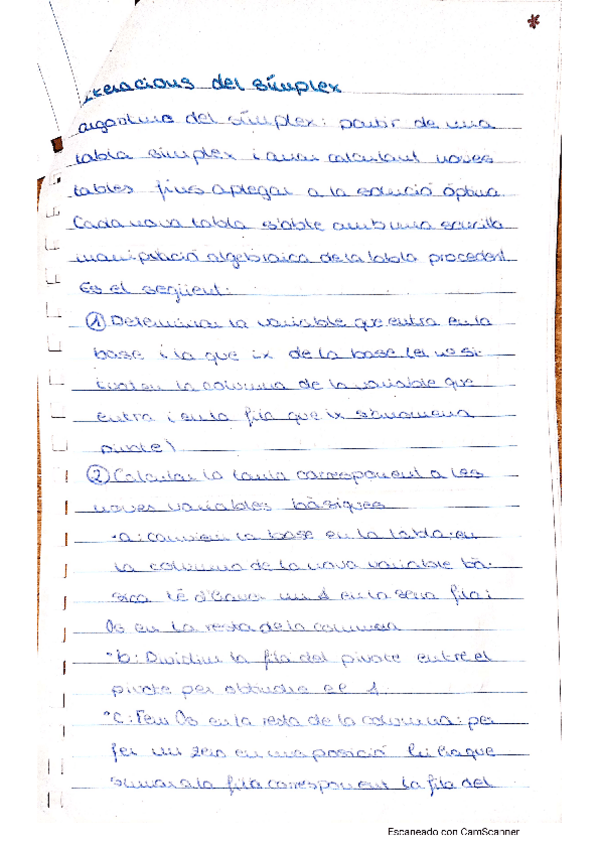 *
iteracions del símplex
algoritme del símplex: partir de una
tabla símplex i anar calculant noves
tables fins aplegar a la solució óptima.
Cada nova tabla s'obté amb una sencilla
manipulació algebraica de la tabla precedent.
Es el següent:
① Determinar la variable que entra en la
base i la que ix de la base (el nº si-
tuat en la columna de la variable que
entra i en la fila que ix s'anomena
pivote)
② Calcular la taula corresponent a les
noves variables bàsiques
·a: canviem la base en la tabla: en
la columna de la nova variable bà-
sica té d'haver un 1 en la seva fila i
0s en la resta de la columna
·b: Dividim la fila del pivote entre el
pivote per obtindre el 1
·c: Fem 0s en la resta de la columna: per
fer un zero en una posició hi ha que
sumar a la fila corresponent la fila del
Escaneado con CamScanner